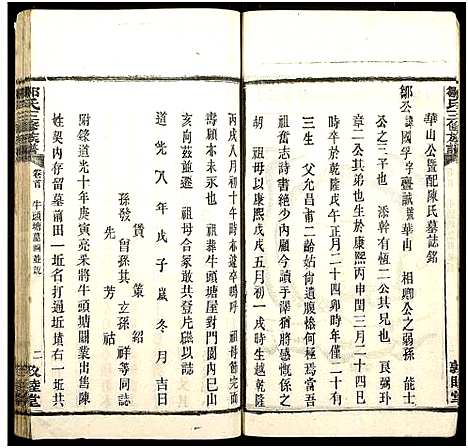 鄒氏三修族譜
華山公暨配陳氏墓誌銘
鄒公諱國孚字疊誠號華山　相卿公之弱孫　能士
公之次子也　添幹有極二公其兄也　良弼玤
章二公其弟也生於康熙丙申閏三月二十四
時年卒於乾隆戊午正月二十四卯時年僅二十有
三生　父允昌甫二齡姑尚遺腹慘何極焉當吾
奮志詩書絕少內顧今讀手澤猶償慨係之
胡　祖母以康熙戊戌五月初一戌時生
丙戌八月初十寅時道卒嗚呼　祖母節完而
壽願本未永也　祖葬牛頭塘屋對門園內巳山
亥向茲並遯　祖母合冢敢共登片礎以誌
道光八年戊子歲冬月吉日
賃　策　紹
孫發　曾孫其　祥等同誌
芳　祜
附錄道光十年庚寅亮采將牛頭塘關業出售陳
姓契內存留墓前田一坵名打過坵墳右一坵名
鄒氏三修族譜
卷首　牛頭塘墓圖並說
二　敦睦堂
敦睦堂